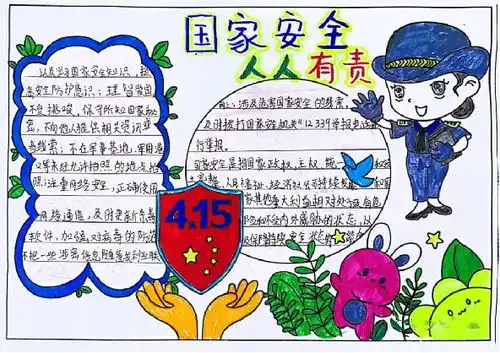 国家安全
人人有责
认真学习国家安全知识，
安全防护意识；理智爱国
不受挑唆，保守所知国家秘
密，不向他人提供相关资讯
线索；不在军事基地，军用港
口等未经允许拍照的地点拍
照；注重网络安全，正确使用
网络通信，及时更新杀毒
软件，加强对病毒的防范
不把一些涉密信息随意发到互联
4.15
上；涉及危害国家安全的线索，
及时拨打国家安全机关12339举报电话
行举报。
国家安全是指国家政权、主权、统一
人民福祉、经济社会可持续发展
家其他重大利益相对处于没有危
和不受内外威胁的状态，以
及保障持续安全状态的